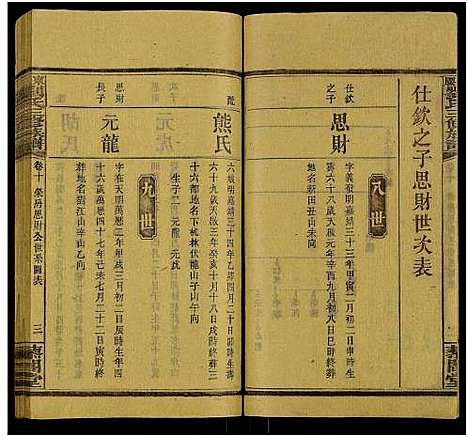 仕欽之子思財世次表
八世
仕欽之子
思財
字義發明嘉靖三十三年甲寅二月
壽六十八歲天啟元年辛酉九月初八日巳時歿葬
地名新田丑山未向
配
熊氏
六歲明嘉靖三十四年乙卯四月初二日午時生壽
六十九歲天啟三年癸亥十月十八日戌時歿葬三
十六都地名下杭林伏龍山子山午向
生子二元龍 元武
九世
思財長子
元龍
字在天明萬曆二年甲戌三月初二日辰時生年四
十六歲萬曆四十七年己未七月二十二日寅時歿
葬地名劉江山辛山乙向
劉氏三修族譜
卷十
榮房思財公世系圖表
三
藜閣堂